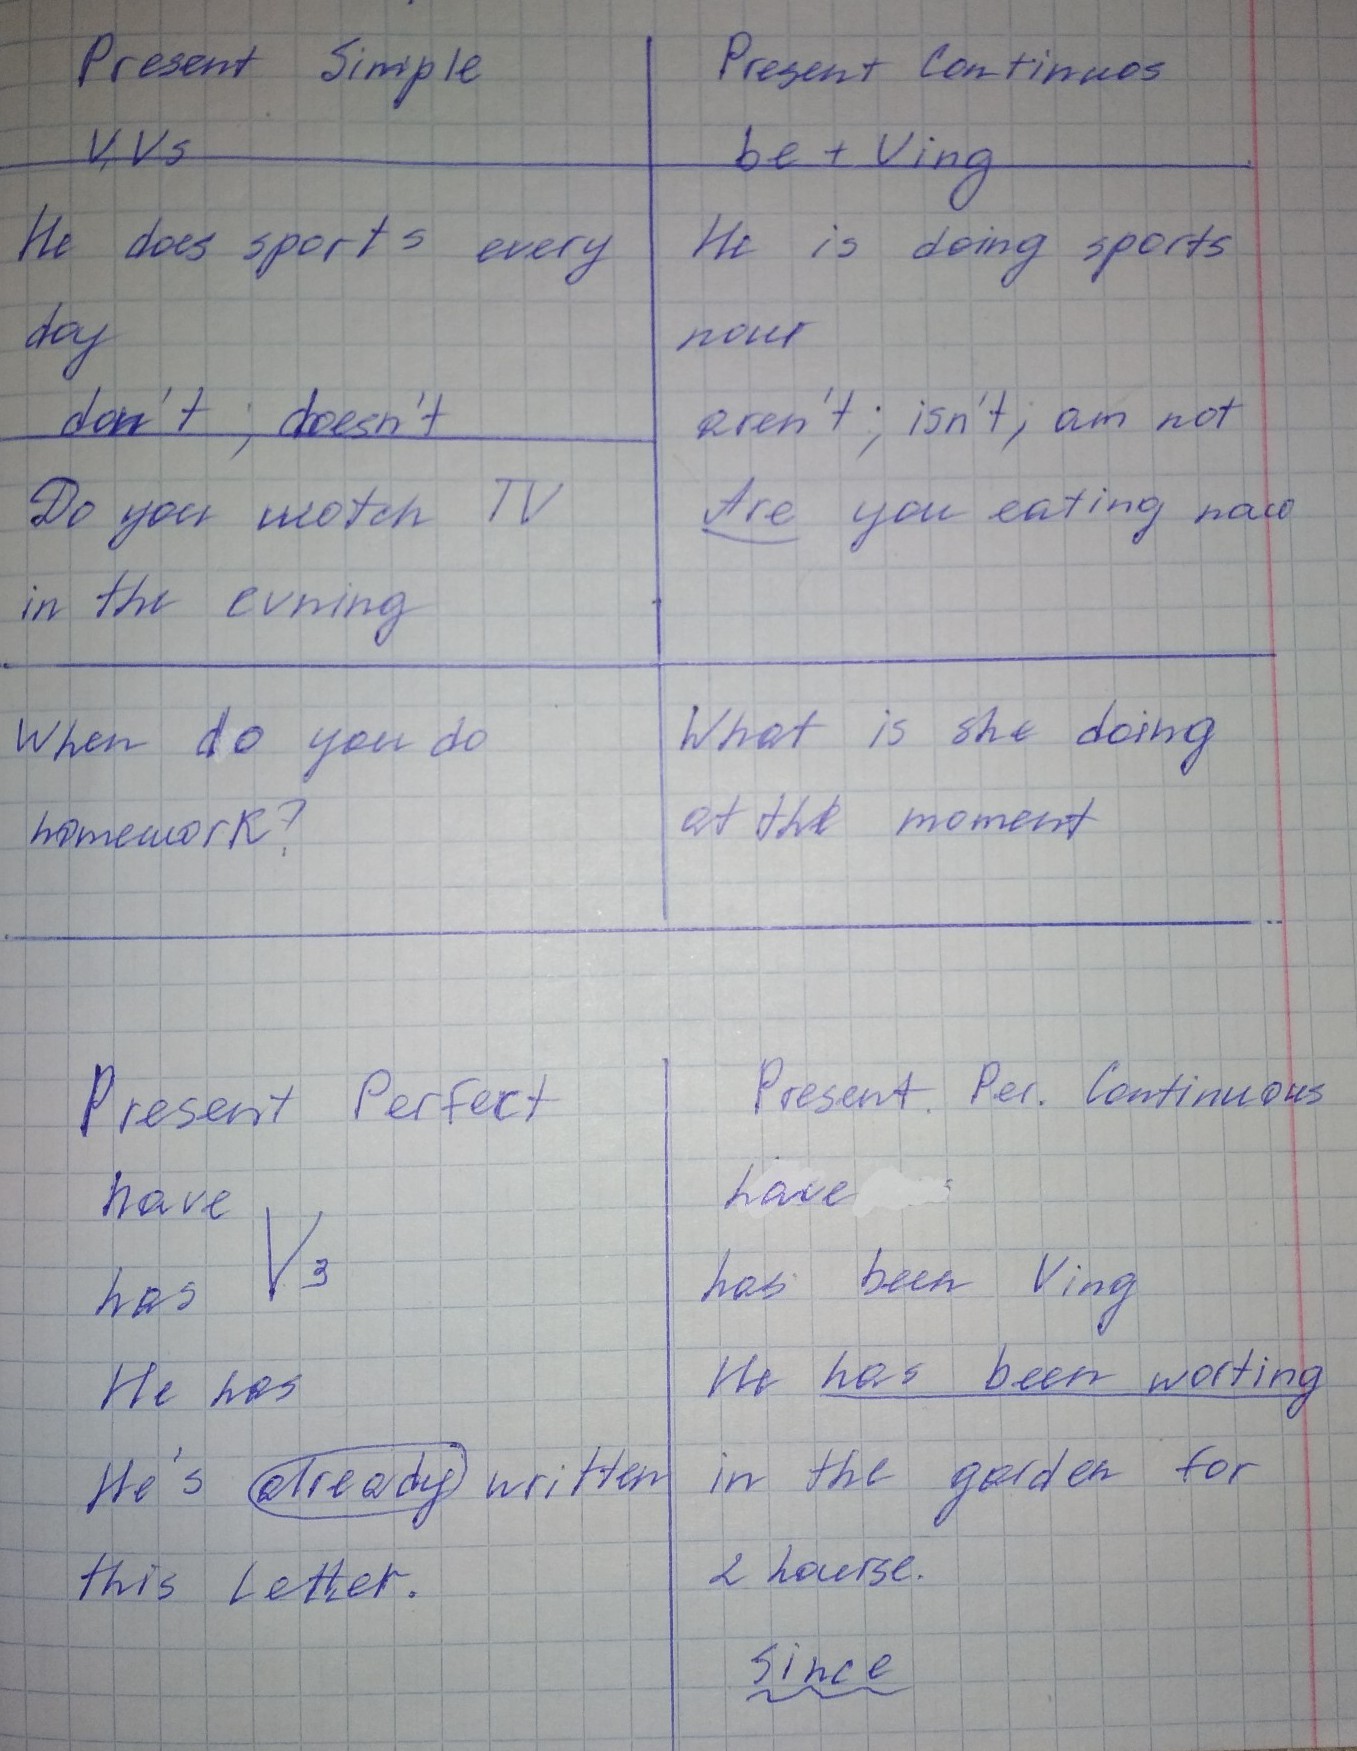 Present Simple
V, Vs
He does sports every
day
don't ; doesn't
Do you watch TV
in the evning
When do you do
homework?
Present Continuos
be + Ving
He is doing sports
now
aren't ; isn't ; am not
Are you eating now
What is she doing
at the moment
Present Perfect
have
has V3
He has
He's already written
this Letter.
Present. Per. Continuous
have
has been Ving
He has been worting
in the garden for
2 hourse.
since